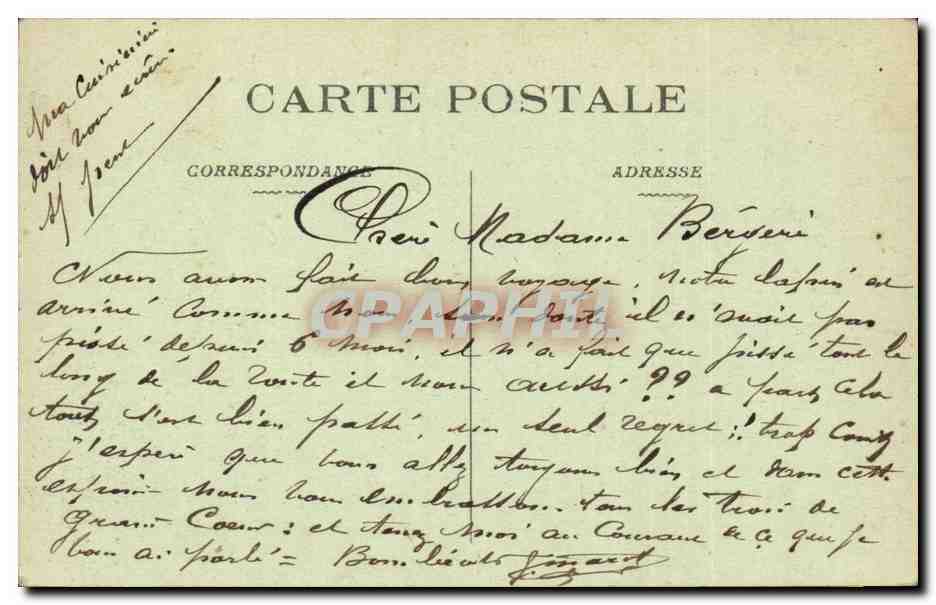 ma Cuisinière
doit vous écrire
CARTE POSTALE
CORRESPONDANCE
ADRESSE
Chere Madame Bergere
Nous avons fait bon voyage, notre lapin est
arrivé comme nous sans doute il n'avait pas
pissé depuis 6 mois, il n'a fait que pissé tout le
long de la route et nous aussi ?? a part cela
tout s'est bien passé, un seul regret :! trop court
J'espère que vous allez toujours bien et dans cette
espoir nous vous embrassons tous les trois de
grand Coeur : et tenez moi au Courant de ce que je
vous ai parlé =
CPAPHIL